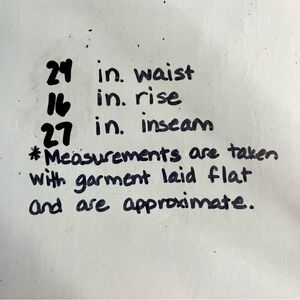 24 in. waist
16 in. rise
27 in. inseam
*Measurements are taken
with garment laid flat
and are approximate.